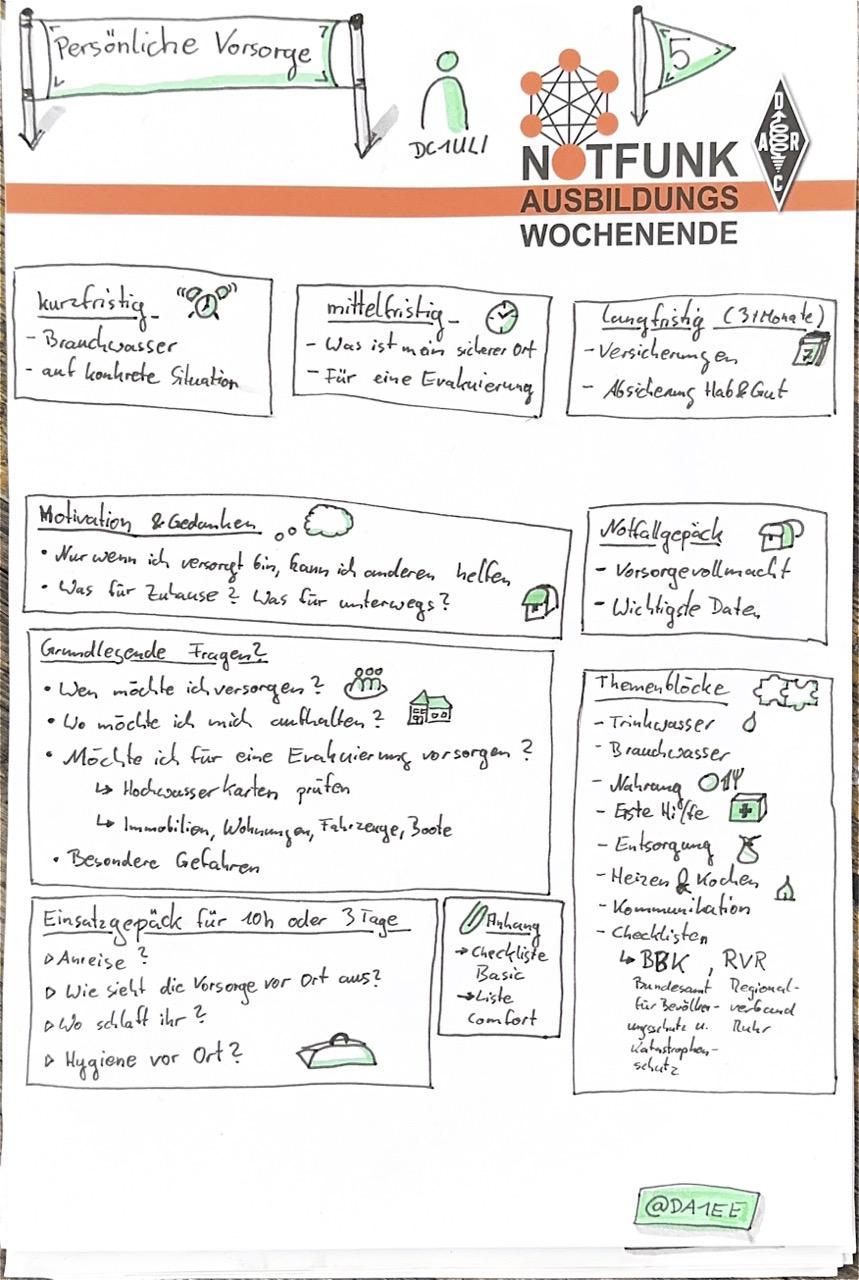 Persönliche Vorsorge
5
DC1ULI
NOTFUNK
AUSBILDUNGS
WOCHENENDE
D
A R
C
kurzfristig
- Brauchwasser
- auf konkrete Situation
mittelfristig
- Was ist mein sicherer Ort
- Für eine Evakuierung
langfristig (3+Monate)
7
- Versicherungen
- Absicherung Hab&Gut
Motivation & Gedanken
• Nur wenn ich versorgt bin, kann ich anderen helfen
• Was für Zuhause? Was für unterwegs?
Notfallgepäck
- Vorsorgevollmacht
- Wichtigste Daten
Grundlegende Fragen?
• Wen möchte ich versorgen?
• Wo möchte ich mich aufhalten?
• Möchte ich für eine Evakuierung vorsorgen?
↳ Hochwasserkarten prüfen
↳ Immobilien, Wohnungen, Fahrzeuge, Boote
• Besondere Gefahren
Themenblöcke
- Trinkwasser
- Brauchwasser
- Nahrung
- Erste Hilfe
- Entsorgung
- Heizen & Kochen
- Kommunikation
- Checklisten
↳ BBK, RVR
Bundesamt
für Bevölker-
ungsschutz u.
Katastrophen-
schutz
Regional-
verband
Ruhr
Einsatzgepäck für 10h oder 3 Tage
▷ Anreise?
▷ Wie sieht die Vorsorge vor Ort aus?
▷ Wo schlaft ihr?
▷ Hygiene vor Ort?
Anhang
→ Checkliste
Basic
→ Liste
Comfort
@DA1EE